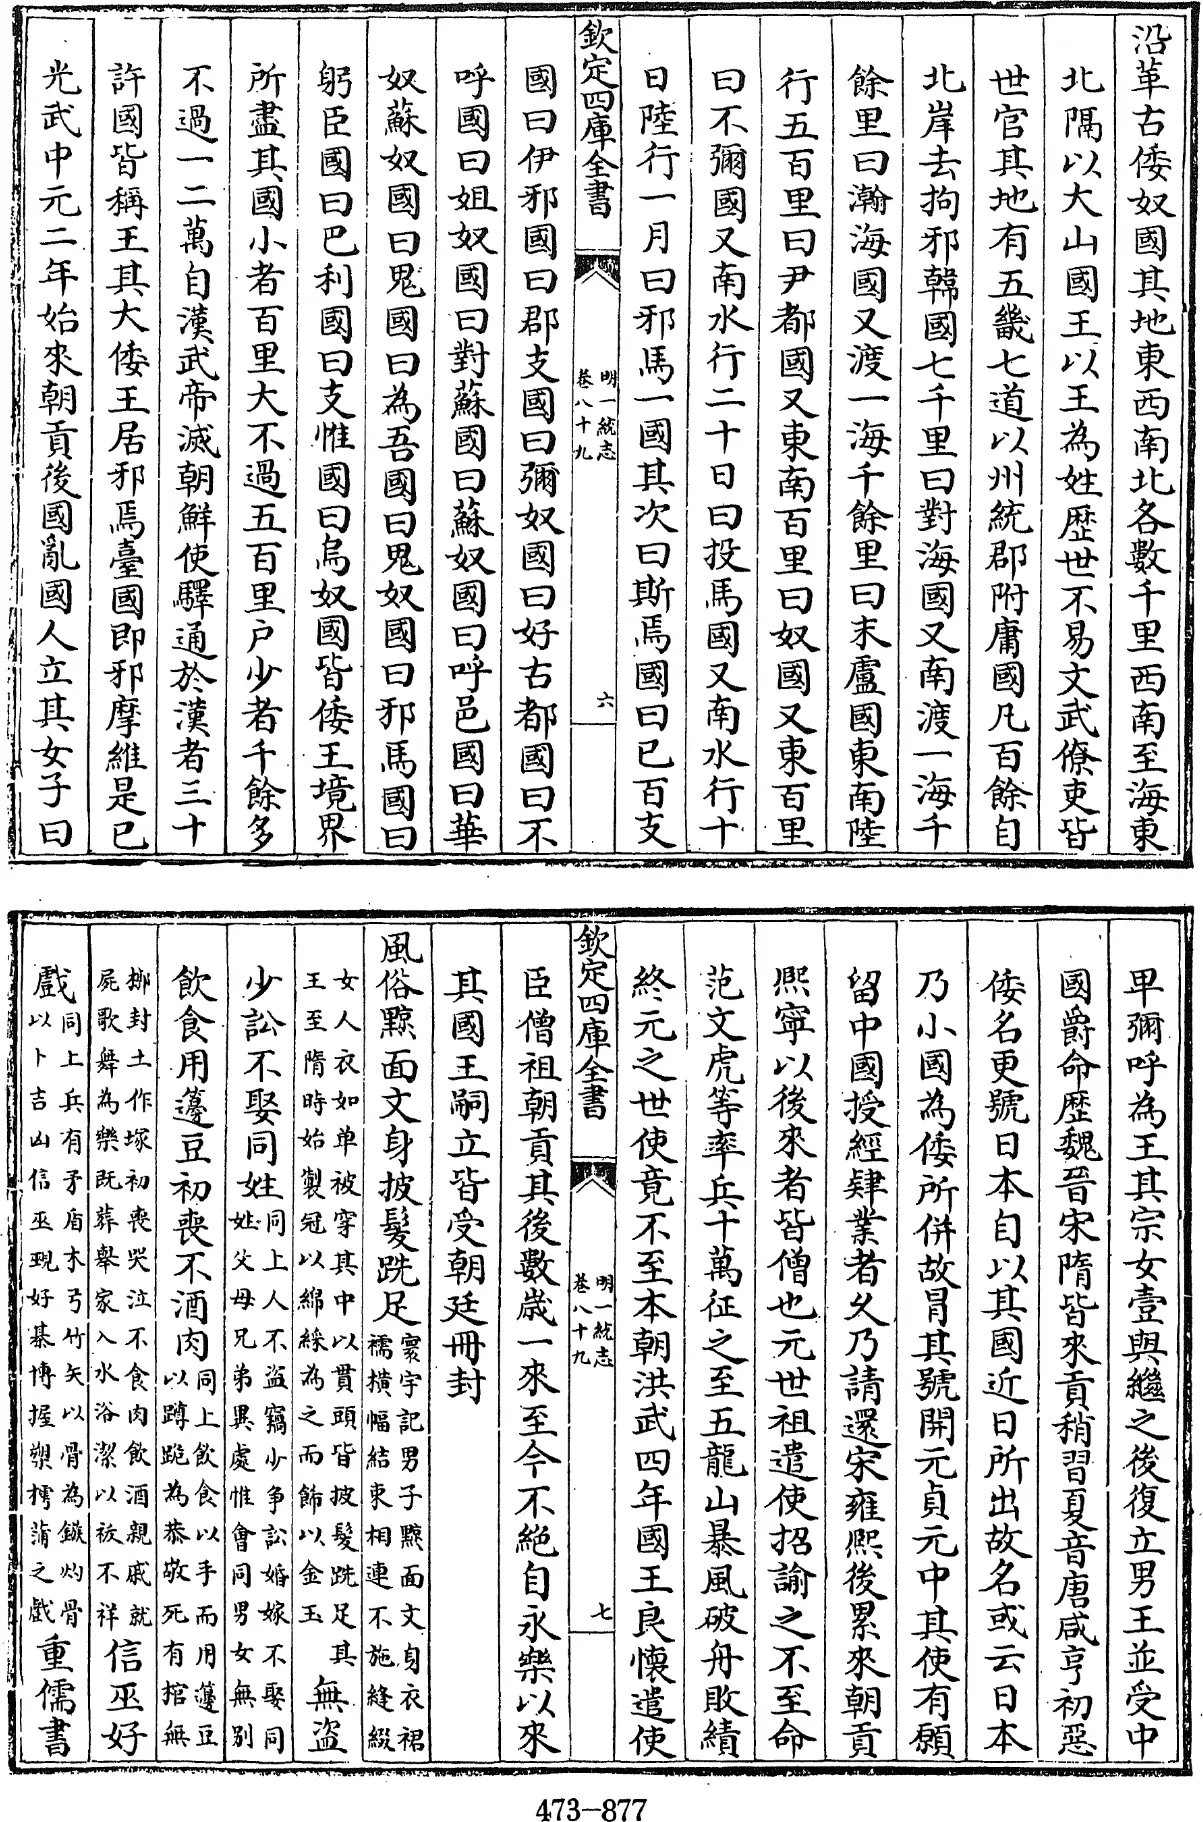 沿革古倭奴國其地東西南北各數千里西南至海東
北隅以大山國王以王為姓歴世不易文武僚吏皆
世官其地有五畿七道以州統郡附庸國凡百餘自
北岸去拘邪韓國七千里曰對海國又南渡一海千
餘里曰瀚海國又渡一海千餘里曰末盧國東南陸
行五百里曰尹都國又東南百里曰奴國又東百里
曰不彌國又南水行二十日曰投馬國又南水行十
日陸行一月曰邪馬一國其次曰斯焉國曰已百支
欽定四庫全書
明一統志
卷八十九
六
國曰伊邪國曰郡支國曰彌奴國曰好古都國曰不
呼國曰姐奴國曰對蘇國曰蘇奴國曰呼邑國曰華
奴蘇奴國曰鬼國曰為吾國曰鬼奴國曰邪馬國曰
躬臣國曰巴利國曰支惟國曰烏奴國皆倭王境界
所盡其國小者百里大不過五百里户少者千餘多
不過一二萬自漢武帝滅朝鮮使驛通於漢者三十
許國皆稱王其大倭王居邪焉臺國即邪摩維是已
光武中元二年始來朝貢後國亂國人立其女子曰
卑彌呼為王其宗女壹與繼之後復立男王並受中
國爵命歴魏晉宋隋皆來貢稍習夏音唐咸亨初惡
倭名更號日本自以其國近日所出故名或云日本
乃小國為倭所併故冒其號開元貞元中其使有願
留中國授經肄業者久乃請還宋雍熙後累來朝貢
熙寧以後來者皆僧也元世祖遣使招諭之不至命
范文虎等率兵十萬征之至五龍山暴風破舟敗績
終元之世使竟不至本朝洪武四年國王良懷遣使
欽定四庫全書
明一統志
卷八十九
七
臣僧祖朝貢其後數歳一來至今不絕自永樂以來
其國王嗣立皆受朝廷冊封
風俗黥面文身披髮跣足寰宇記男子黥面文身衣裙
襦横幅結束相連不施縫綴
女人衣如单被穿其中以貫頭皆披髮跣足其
王至隋時始製冠以綿綵為之而飾以金玉無盗
少訟不娶同姓同上人不盗竊少争訟婚嫁不娶同
姓父母兄弟異處惟會同男女無别
飲食用籩豆初喪不酒肉同上飲食以手而用籩豆
以蹲跪為恭敬死有棺無
槨封土作塚初喪哭泣不食肉飲酒親戚就
屍歌舞為樂既葬舉家入水浴潔以祓不祥信巫好
戲同上兵有矛盾木弓竹矢以骨為鏃灼骨
以卜吉凶信巫覡好棊博握槊樗蒲之戲重儒書
473-877